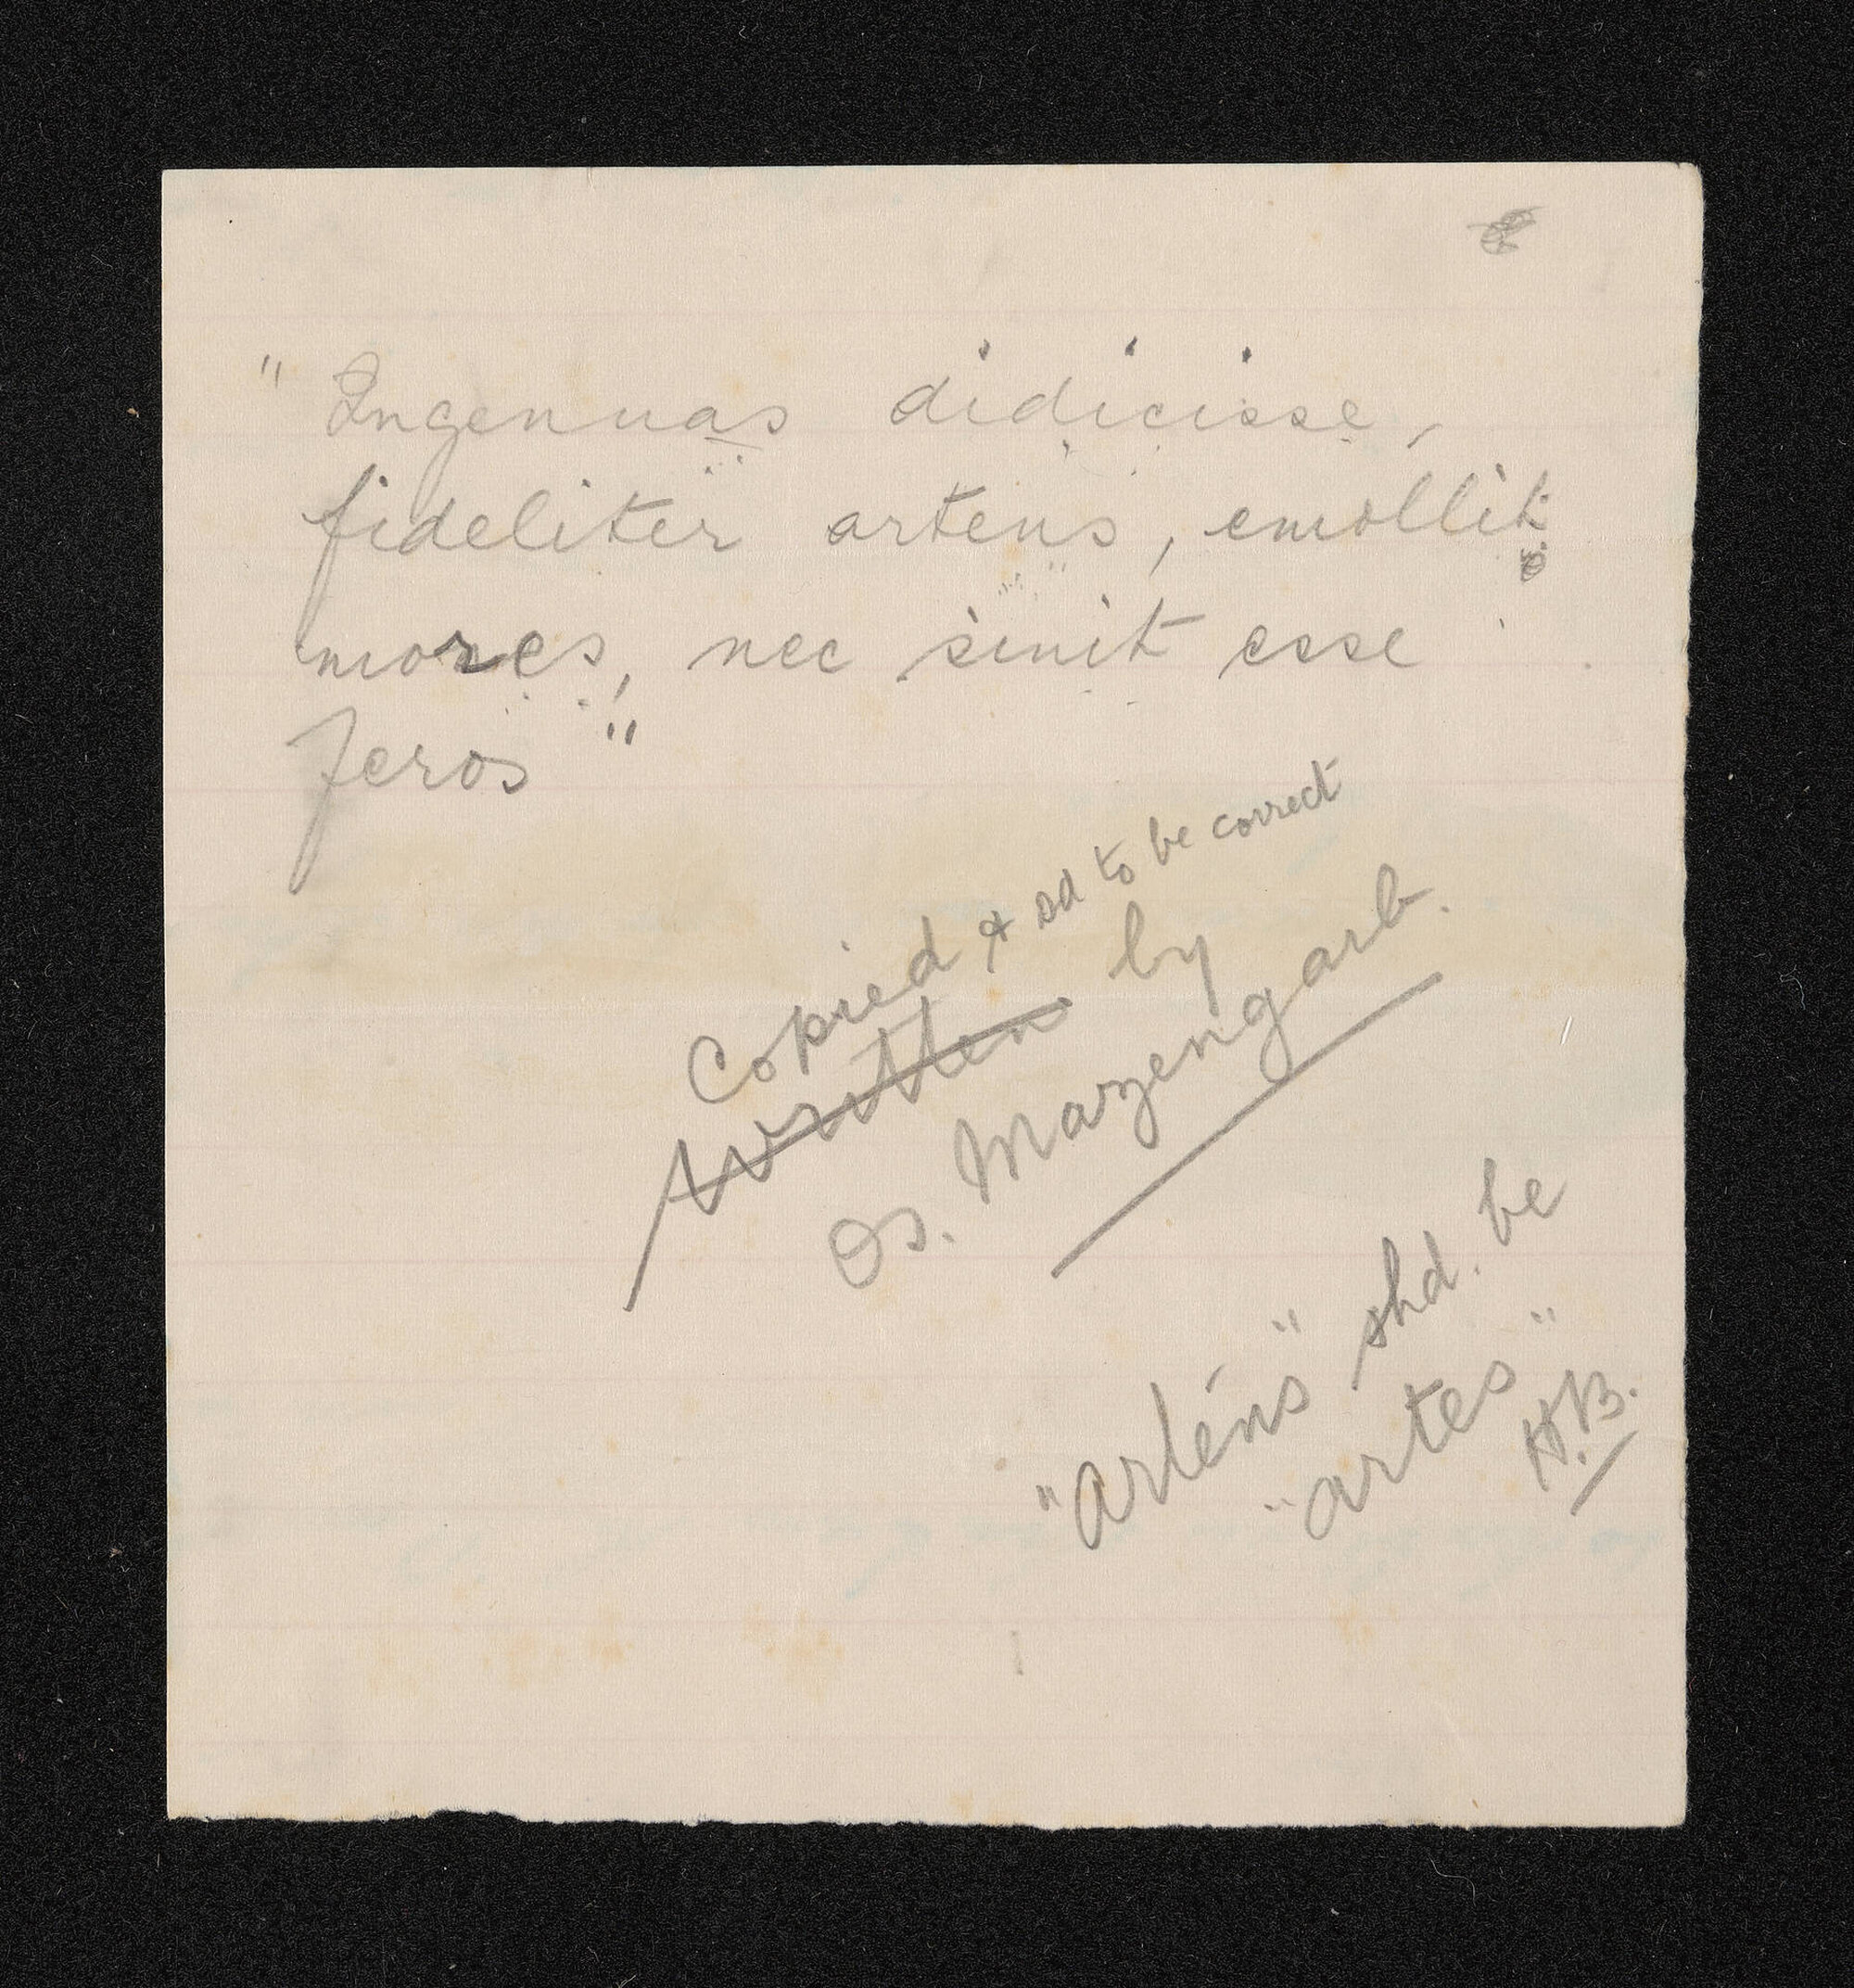 " Ingenuas didicisse,
fideliter artens, emollit
mores, nec sinit esse
feros "
Copied & sd to be correct
Written by
Os. Mazengarb.
"arténs" shd. be
"artes"
H.B.